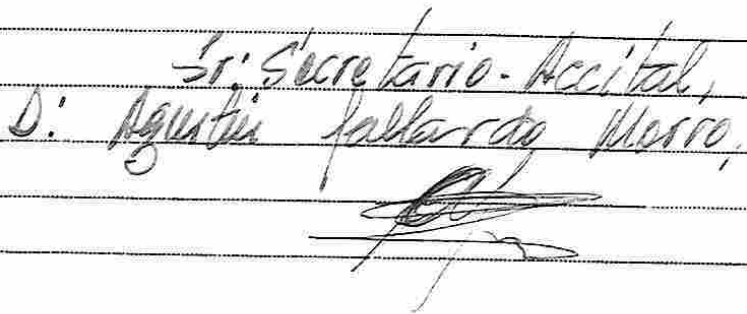 Sr: Secretario-Accital,
D: Agustín Gallardo Morro,